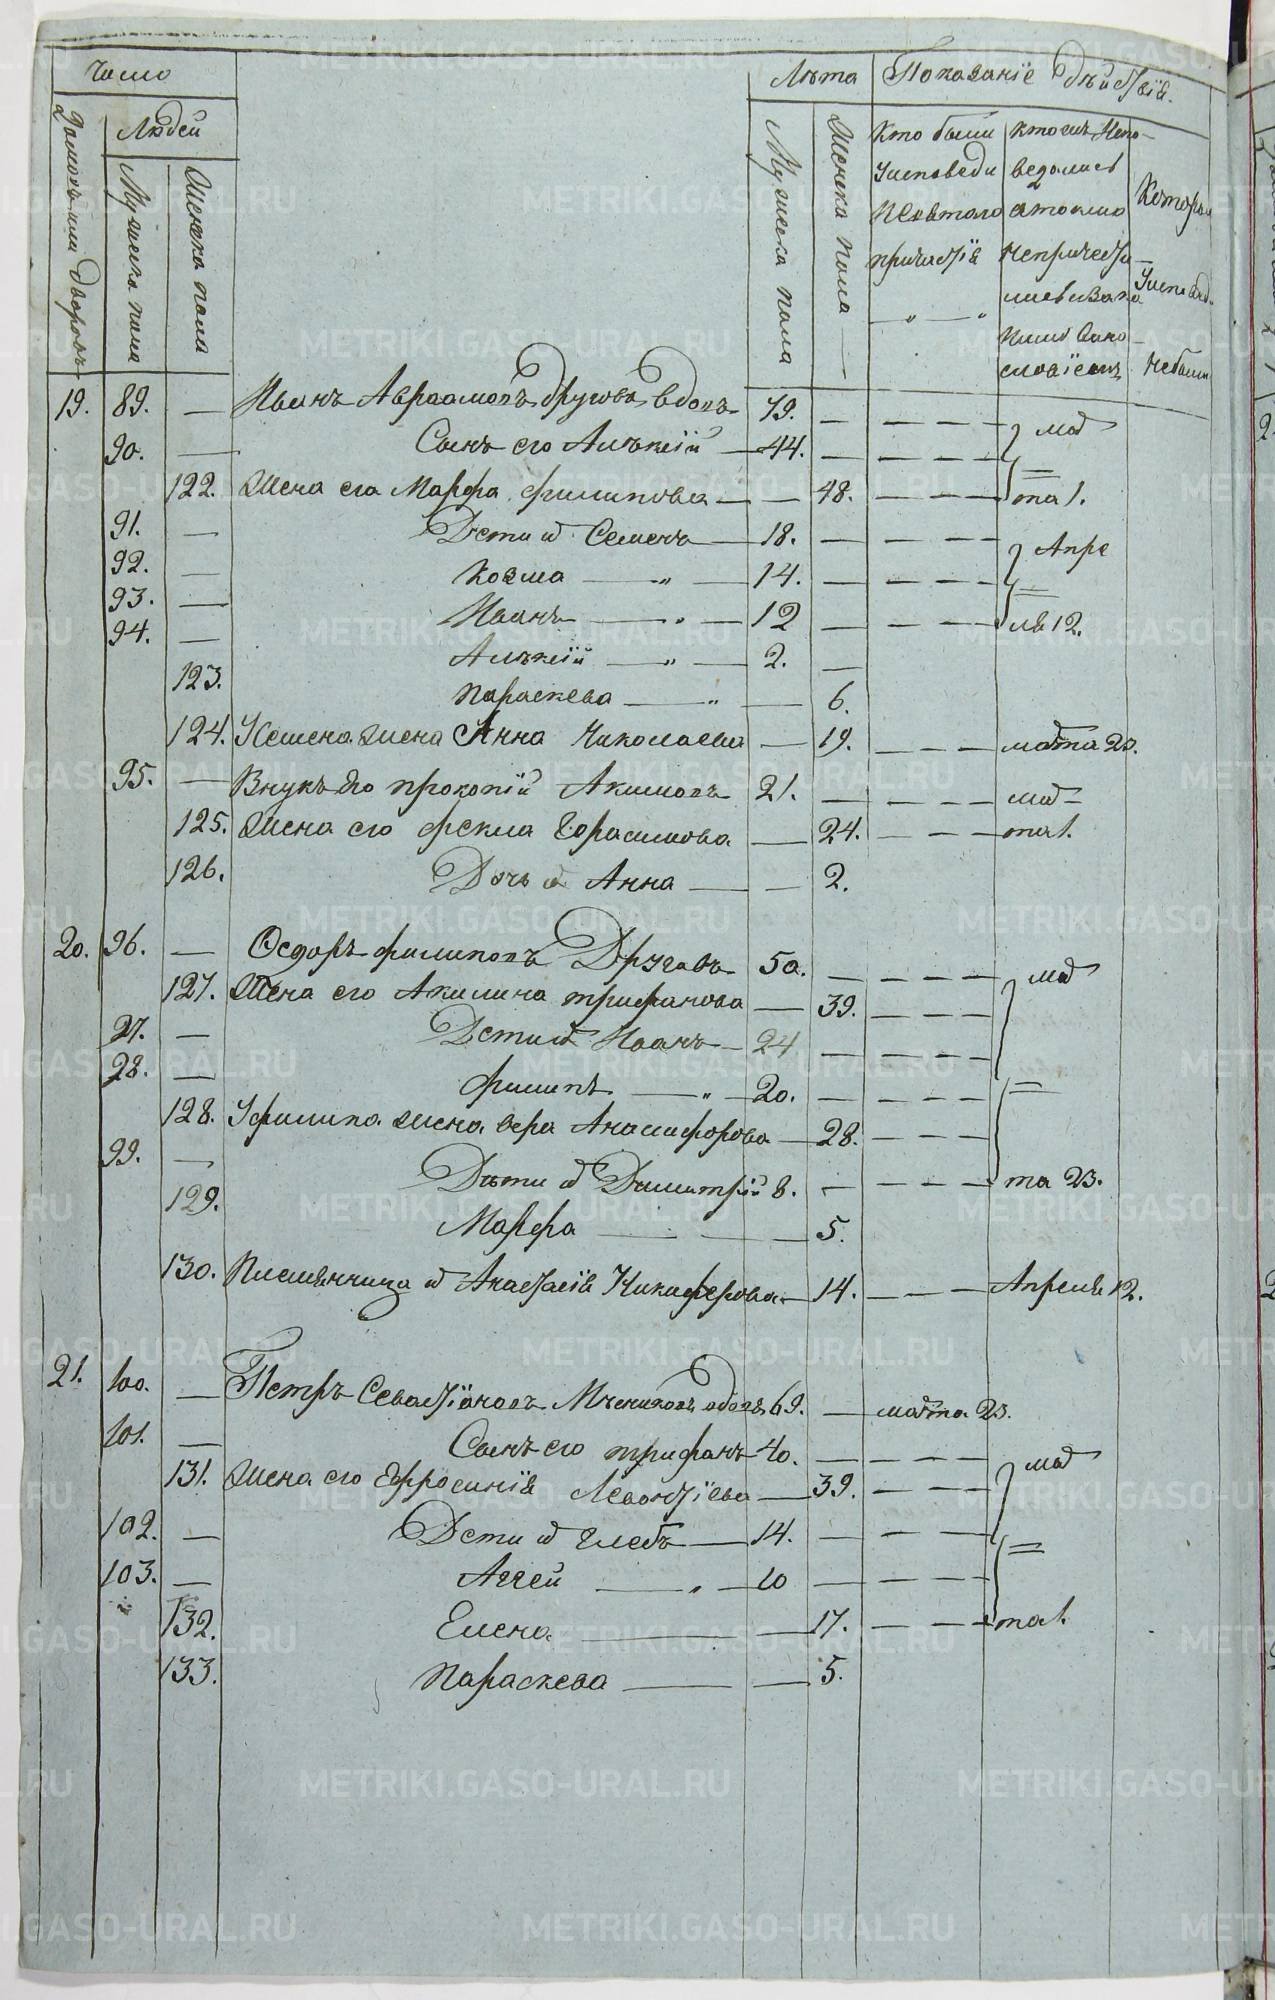 Число
Лѣта Показанїе дѣйствїя.
Домовъ или дворовъ
Людей
Мужеска пола
Женска пола
Мужеска пола
Женска пола
Кто были
Исповеди
и святаго
причастїя
кто изъ испо-
ведолись
а токмо
непричести-
лись и какo
Которыя
небыли
19. 89. — Иванъ Авраамовъ Друговъ вдовъ 79. —
90. — Сынъ его Алѣкѣй 44. — мар
122. Жена его Марфа Филипова — 48. та 1.
91. — Дѣти их Семенъ 18. —
92. — Козма 14. — Апре
93. — Иванъ 12 — ля 12.
94. — Алѣкѣй 2. —
123. Параскева — 6.
124. У Семена жена Анна Николаева — 19. марта 23.
95. — Внукъ его Прокопїй Акимовъ 21. — мар-
125. Жена его Фекла Герасимова — 24. та 1.
126. Дочь их Анна — 2.
20. 96. — Ѳедоръ Филиповъ Друговъ 50. — мар
127. Жена его Акилина Трифанова — 39.
97. — Дети их Иванъ 24 —
98. — Филипъ 20. —
128. У Филипа жена Вера Анасифорова — 28.
99. — Дѣти их Димитрїй 8. — та 23.
129. Марфа — 5.
130. Племянница их Анастасїя Никиферова — 14. Апреля 12.
21. 100. — Петръ Севастїановъ вдовъ 69. — марта 23.
101. — Сынъ его Трифанъ 40. — мар
131. Жена его Ефросинїя Леонтїева — 39.
102. — Дети их Глебъ 14. —
103. — Аггей 10 —
132. Елена — 17. та 1.
133. Параскева — 5.
METRIKI.GASO-URAL.RU